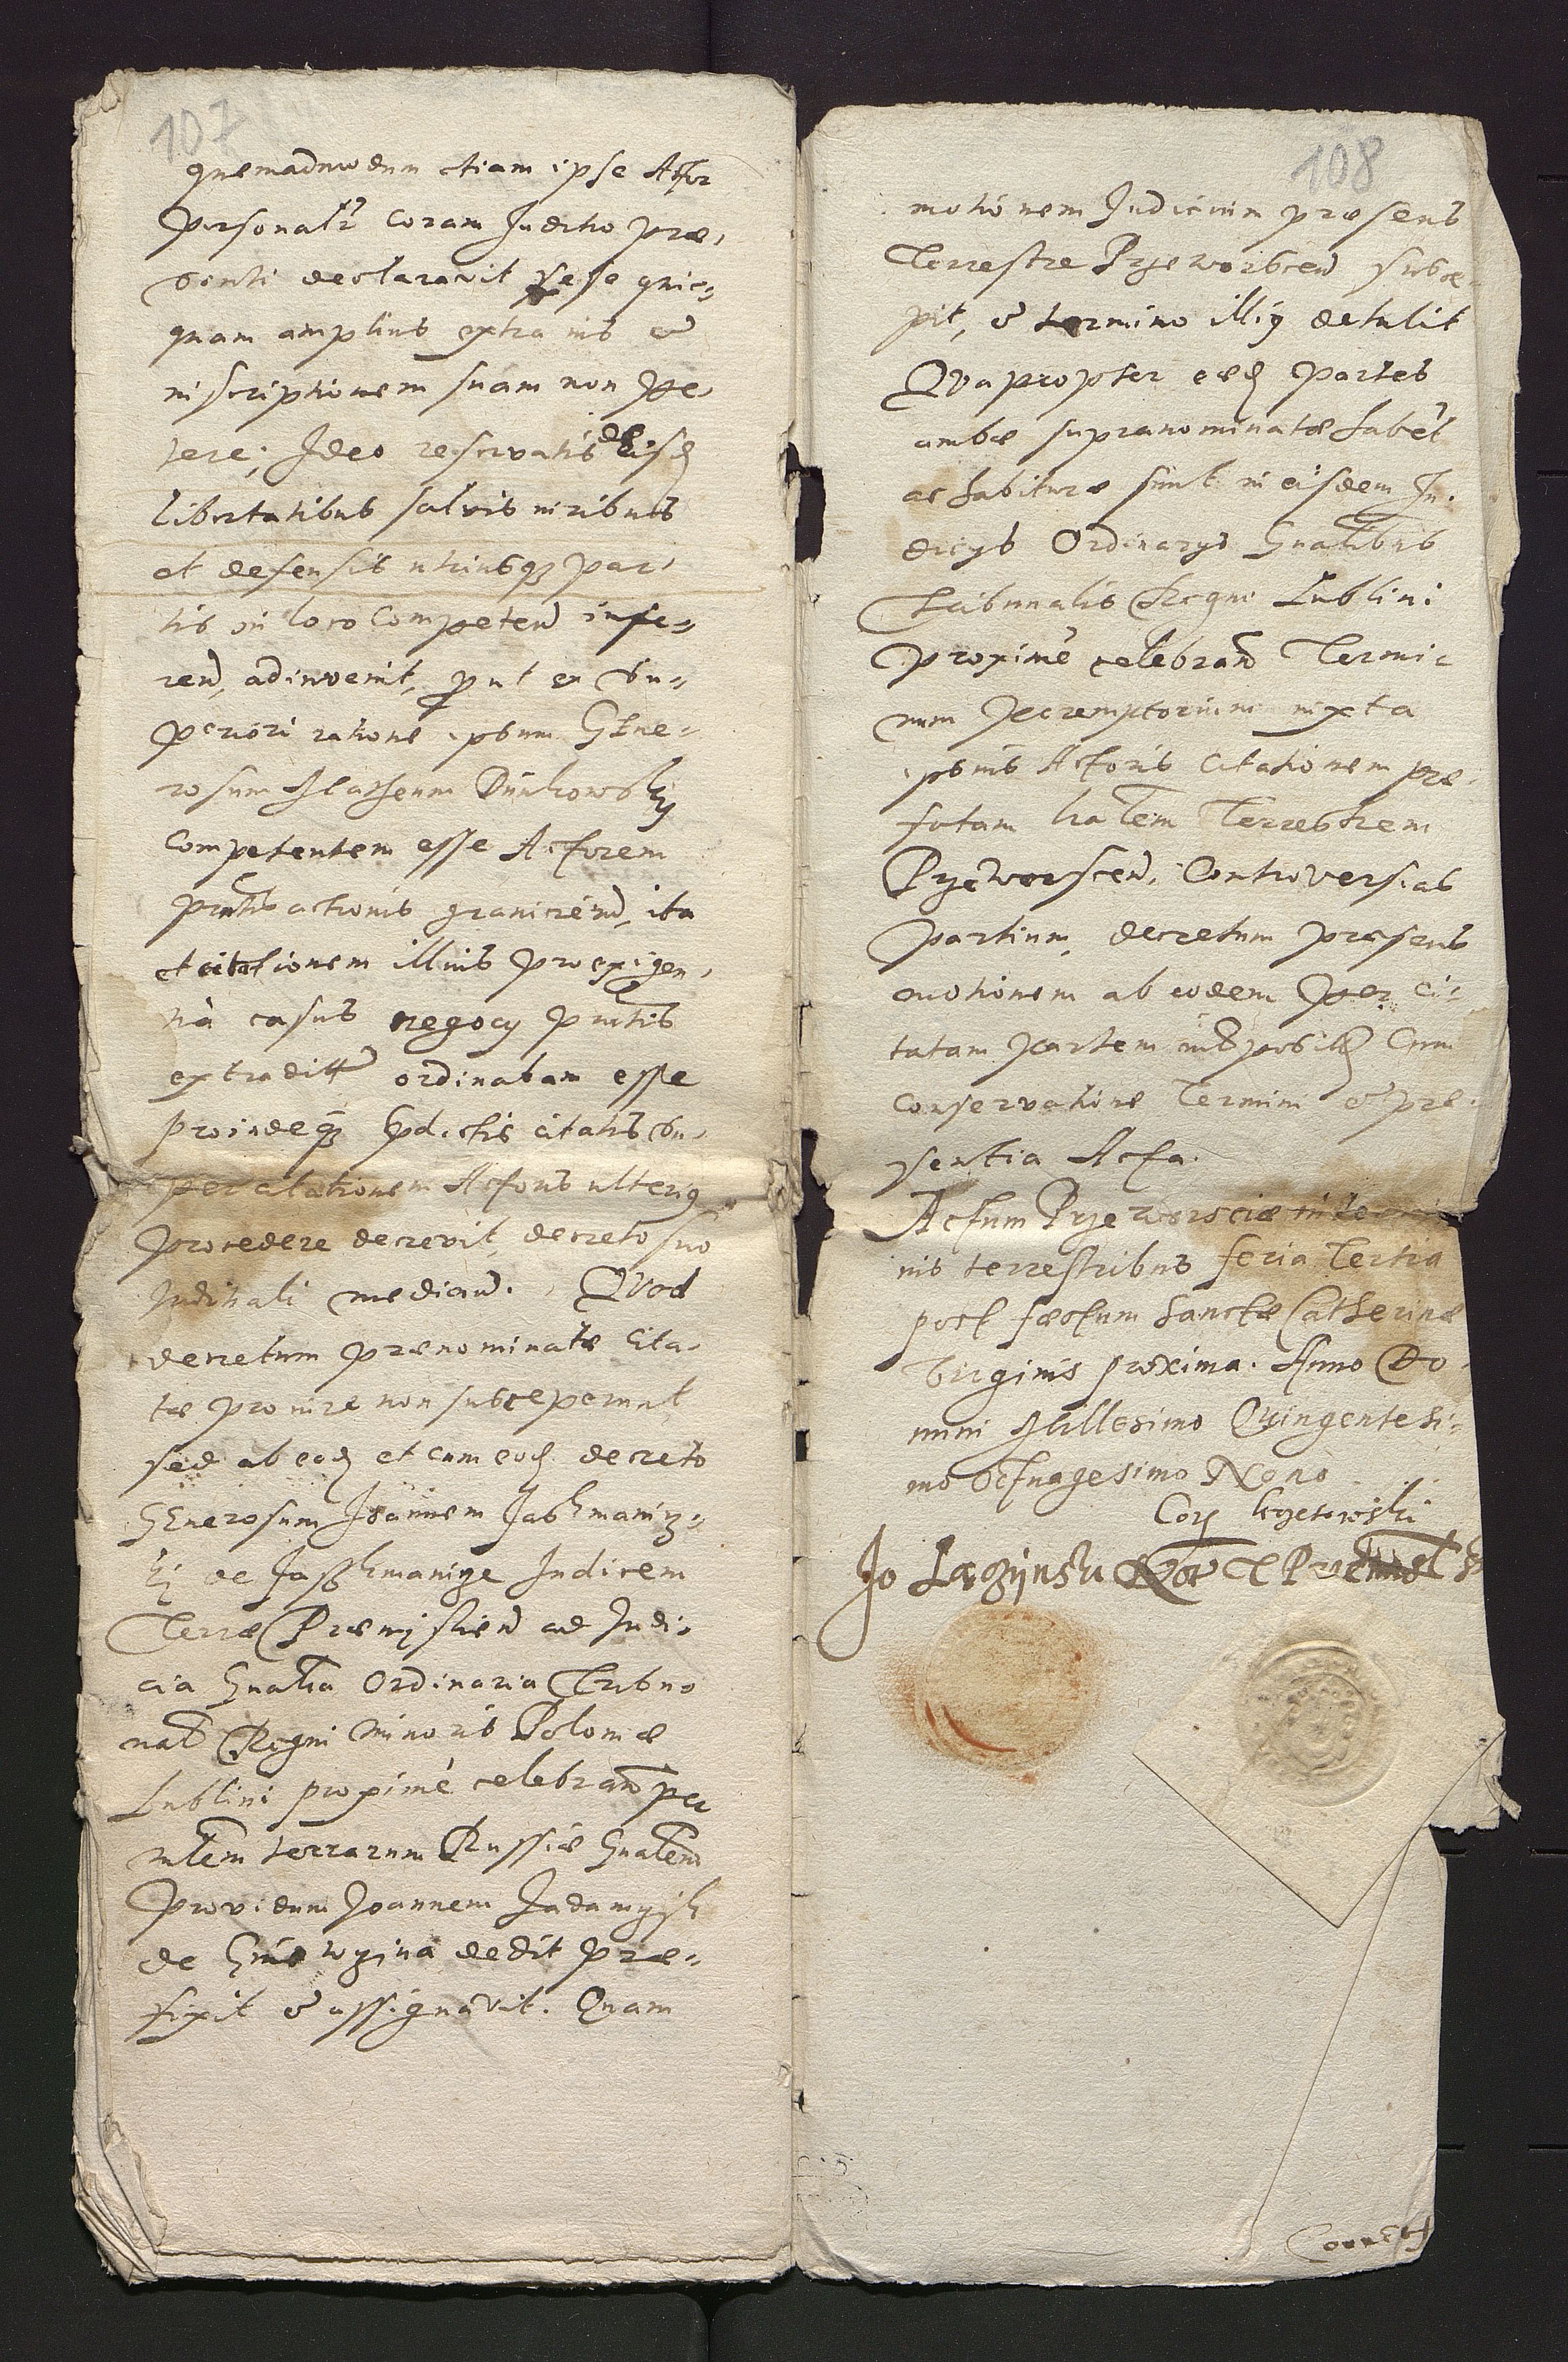 107
quemadmodum etiam ipse Actor
personalr̃ coram Judicio præ,
senti declaravit sese quic„
quam amplius extra ius et
inscriptionem suam non pe,
tere; Ideo reservatis de eisd
libertatibus salvis iuribus
et defensis utriusq₃ par,
tis in loco competen infe„
ren, adinvenit, put ex su„
periori ratione ipsum Gene„
rosum Matheum Dunkowsky
competentem esse Actorem
pntis actionis granicien, ita
et citationem illius pro exigen,
tia casus negocy pntis
extraditt ordinatam esse
proindeq₃ sp̃dictis citatis su,
per citationem Actoris ulterig
procedere decrevit, decreto suo
Judiciali median. Quod
decretum prænominatæ Cita,
tæ pro iure non susceperunt
sed ab eod et cum eod decreto
Generosum Joannem Jaskmaniz„
ky de Jasskmanige Judicem
Terræ Præmislien ad Judi,
cia Gnalia Ordinaria Tribu
nal Regni minoris Poloniæ
Lublini proximè celebran per
mlem terrarum Russiæ Gnalem
Providum Joannem
de dedit præ„
fixit et assignavit. Quam
108
motionem Judicium præsens
Terrestre Przeworscen susce„
pit, et termino illig detulit
Quapropter eæd partes
ambæ supranominatæ habet
ac habituræ sunt in eisdem Ju,
dicys Ordinarys Gnalibus
Tribunalis Regni Lublini
proximè celebran Termi„
num peremptorium iuxta
ipsius Actoris citationem præ„
fatam Terrestrem
Przeworscen, Controversias
partium, decretum præsens
motionem ab eodem per ci„
tatam partem Cum
conservatione Termini et præ„
sentia Acta.
Actum Przeworsciæ in termi
nis terrestribus feria Tertia
post fæstum Sanctæ Catherinæ
Virginis proxima. Anno Do„
mini Millesimo Quingentesi„
mo Octuagesimo Nono
Cor
Jo
Correct